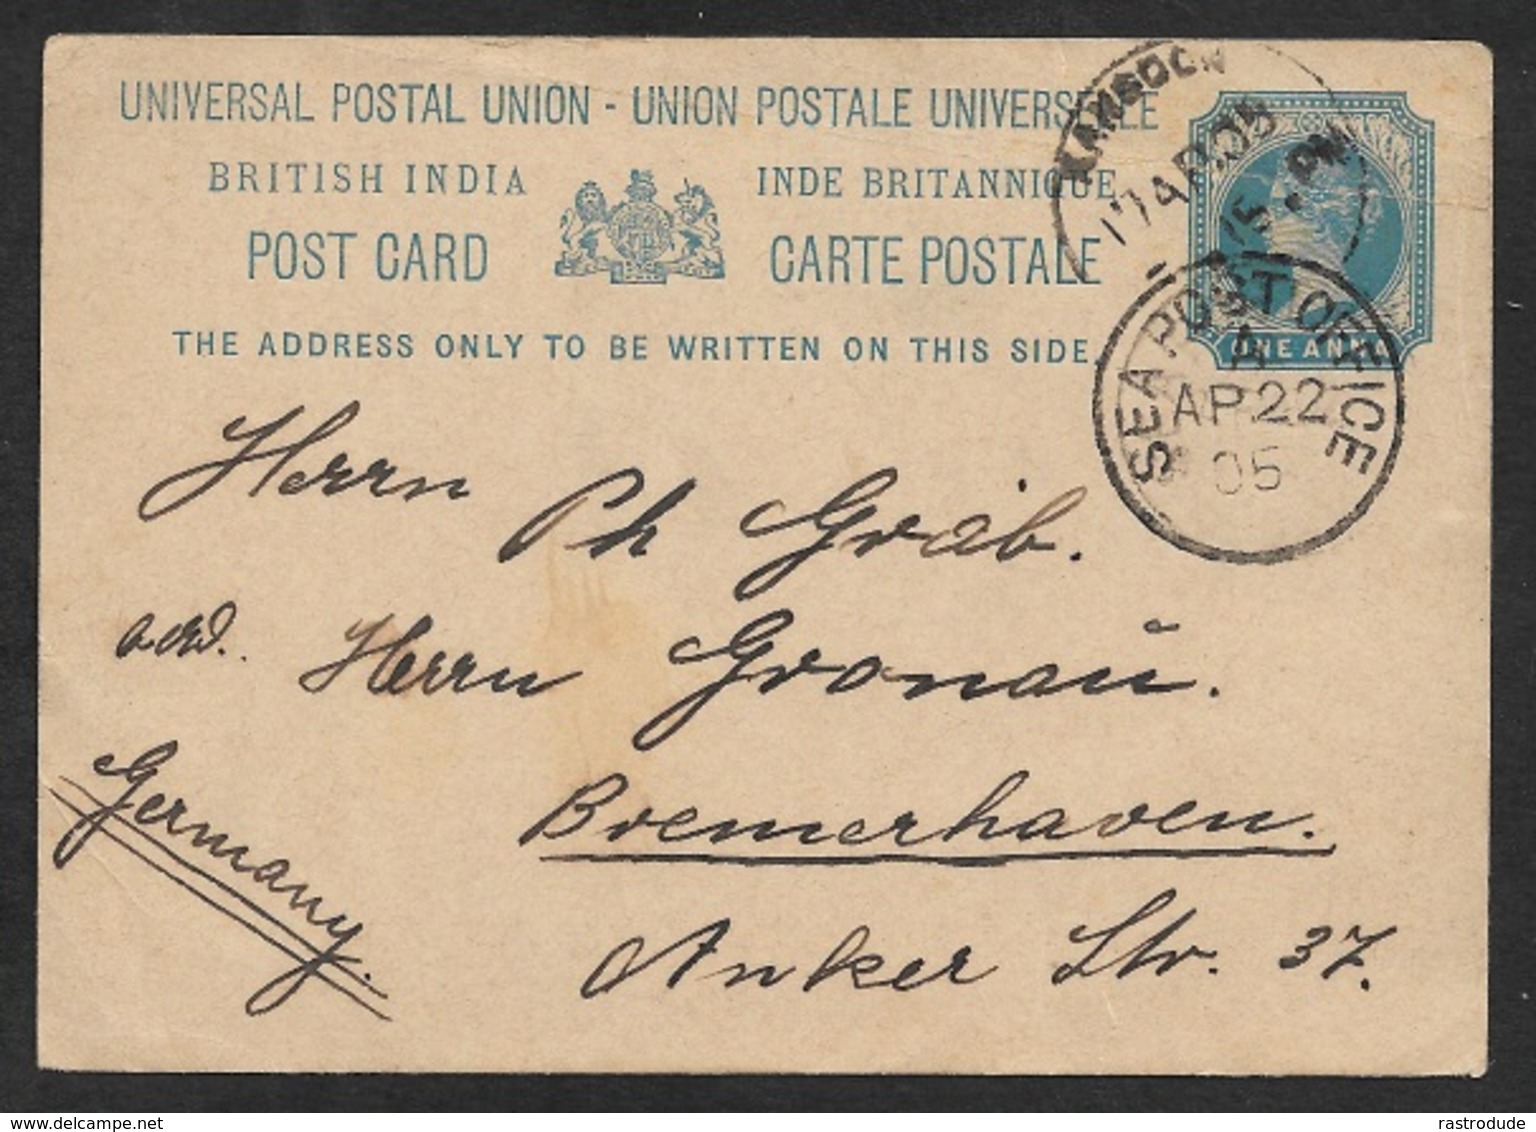 UNIVERSAL POSTAL UNION - UNION POSTALE UNIVERSELLE
BRITISH INDIA INDE BRITANNIQUE
POST CARD CARTE POSTALE
THE ADDRESS ONLY TO BE WRITTEN ON THIS SIDE
RANGOON
17 AP. 05
PM
ONE ANNA
SEA POST OFFICE
A
AP 22
05
Herrn
Ph Gräb.
Herrn Gronau.
Germany.
Bremerhaven.
Anker Str. 37.
delcampe.net
rastrodude